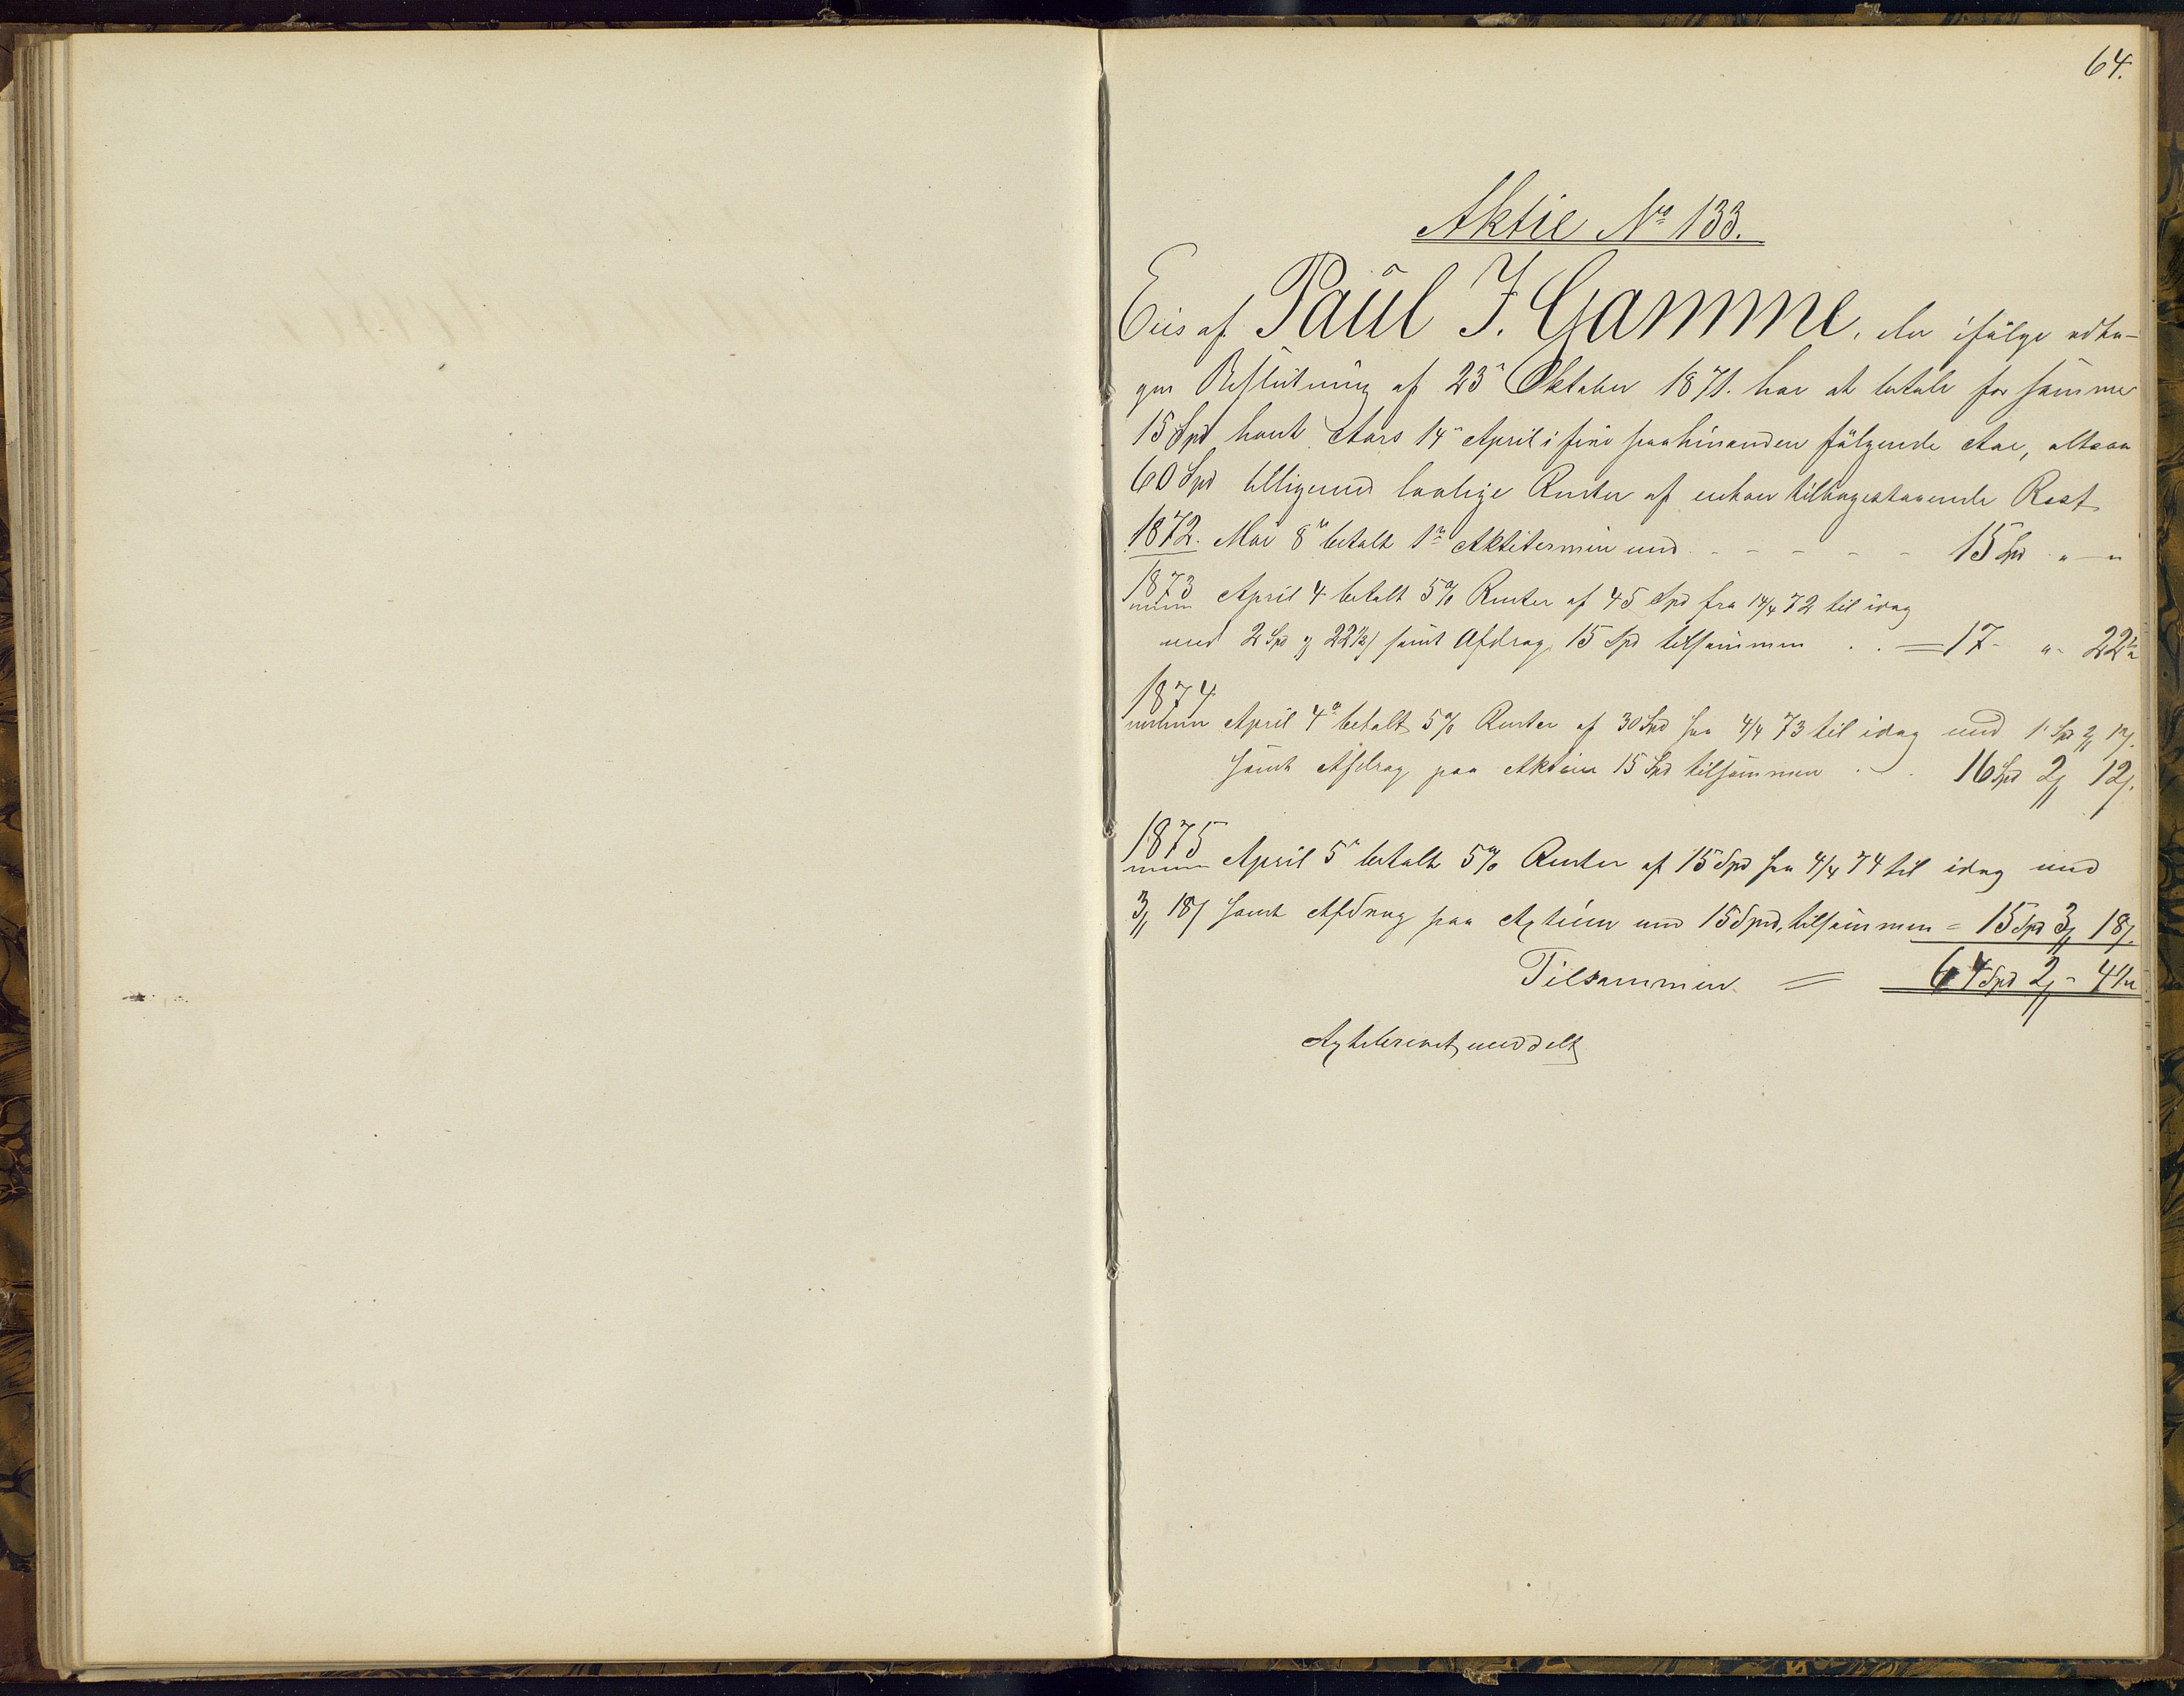 64.
Aktie No 133.
Eies af Paul J. Gamme, der ifølge vedta-
gen Beslutning af 23de Oktober 1871. har at betale for samme
15 Spd hvert Aars 14de April i fire paahinanden følgende Aar, altsaa
60 Spd tilligemed lovlige Renter af enhver tilbagestaaende Rest
1872. Mai 8de betalt 1ste Aktietermin med - - - - - 15 Spd " — "
1873 April 4 betalt 5% Renter af 45 Spd fra 14/4 72 til idag
med 2 Spd og 22½ s samt Afdrag 15 Spd tilsammen . . = 17 - " - 22½
1874 April 4de betalt 5% Renter af 30 Spd fra 4/4 73 til idag med 1 Spd 2 12 s.
samt Afdrag paa Aktien 15 Spd tilsammen . . 16 Spd 2 12 s.
1875 April 5te betalt 5% Renter af 15 Spd fra 4/4 74 til idag med
3 18 s samt Afdrag paa Aktien med 15 Spd, tilsammen = 15 Spd 3 18 s.
Tilsammen = 64 Spd 2 - 4½
Aktiebrevet meddelt